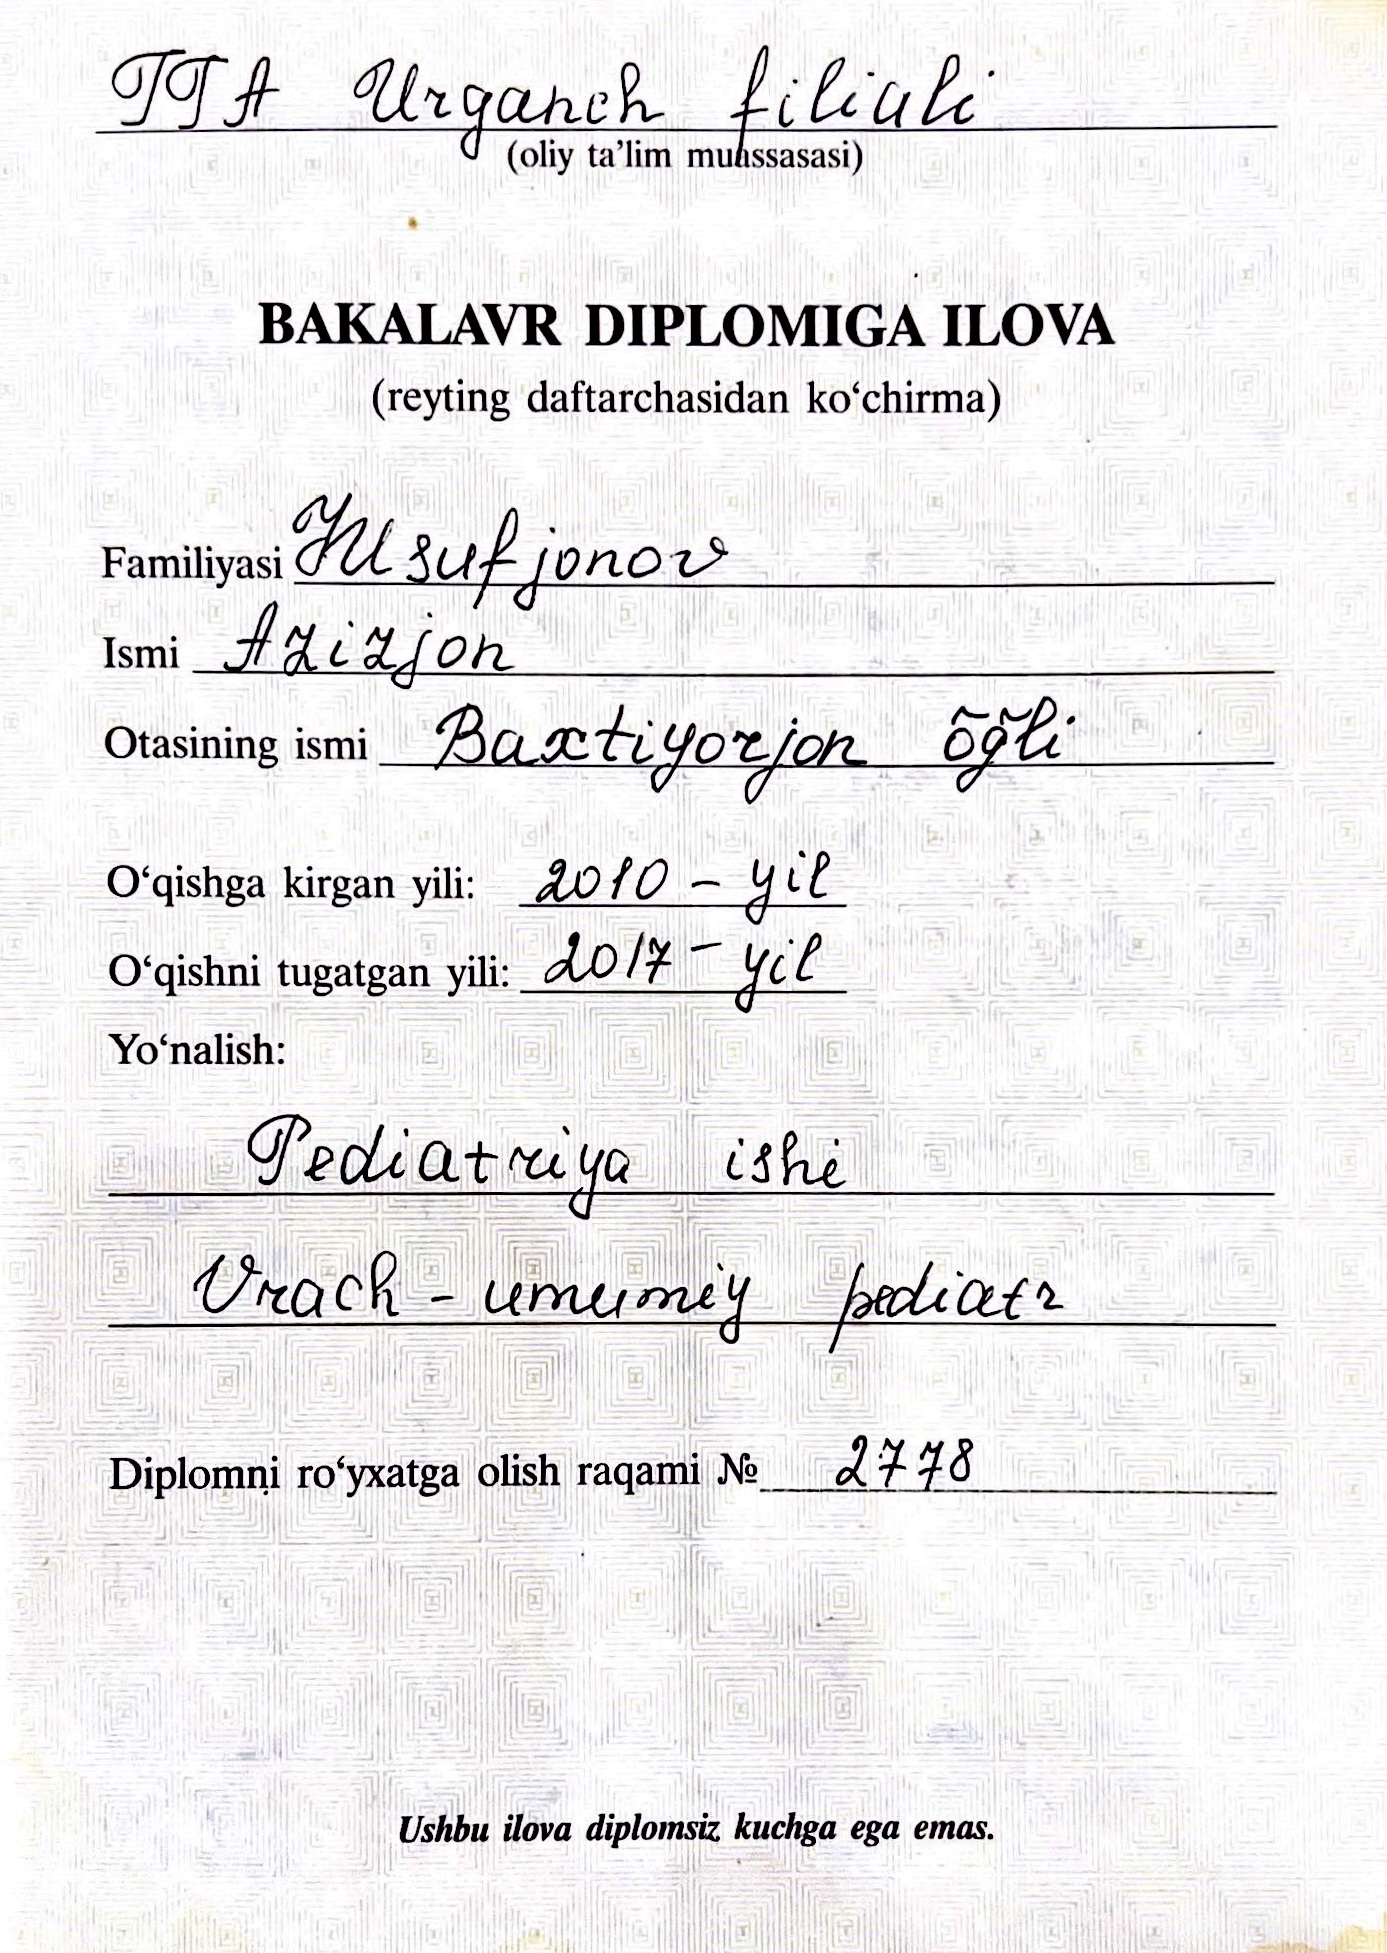 TTA Urganch filiali
(oliy ta’lim muassasasi)
BAKALAVR DIPLOMIGA ILOVA
(reyting daftarchasidan ko‘chirma)
Familiyasi Yusufjonov
Ismi Azizjon
Otasining ismi Baxtiyorjon õg̃li
O‘qishga kirgan yili: 2010 – yil
O‘qishni tugatgan yili: 2017 – yil
Yo‘nalish:
Pediatriya ishi
Vrach – umumiy pediatr
Diplomni ro‘yxatga olish raqami № 2778
Ushbu ilova diplomsiz kuchga ega emas.